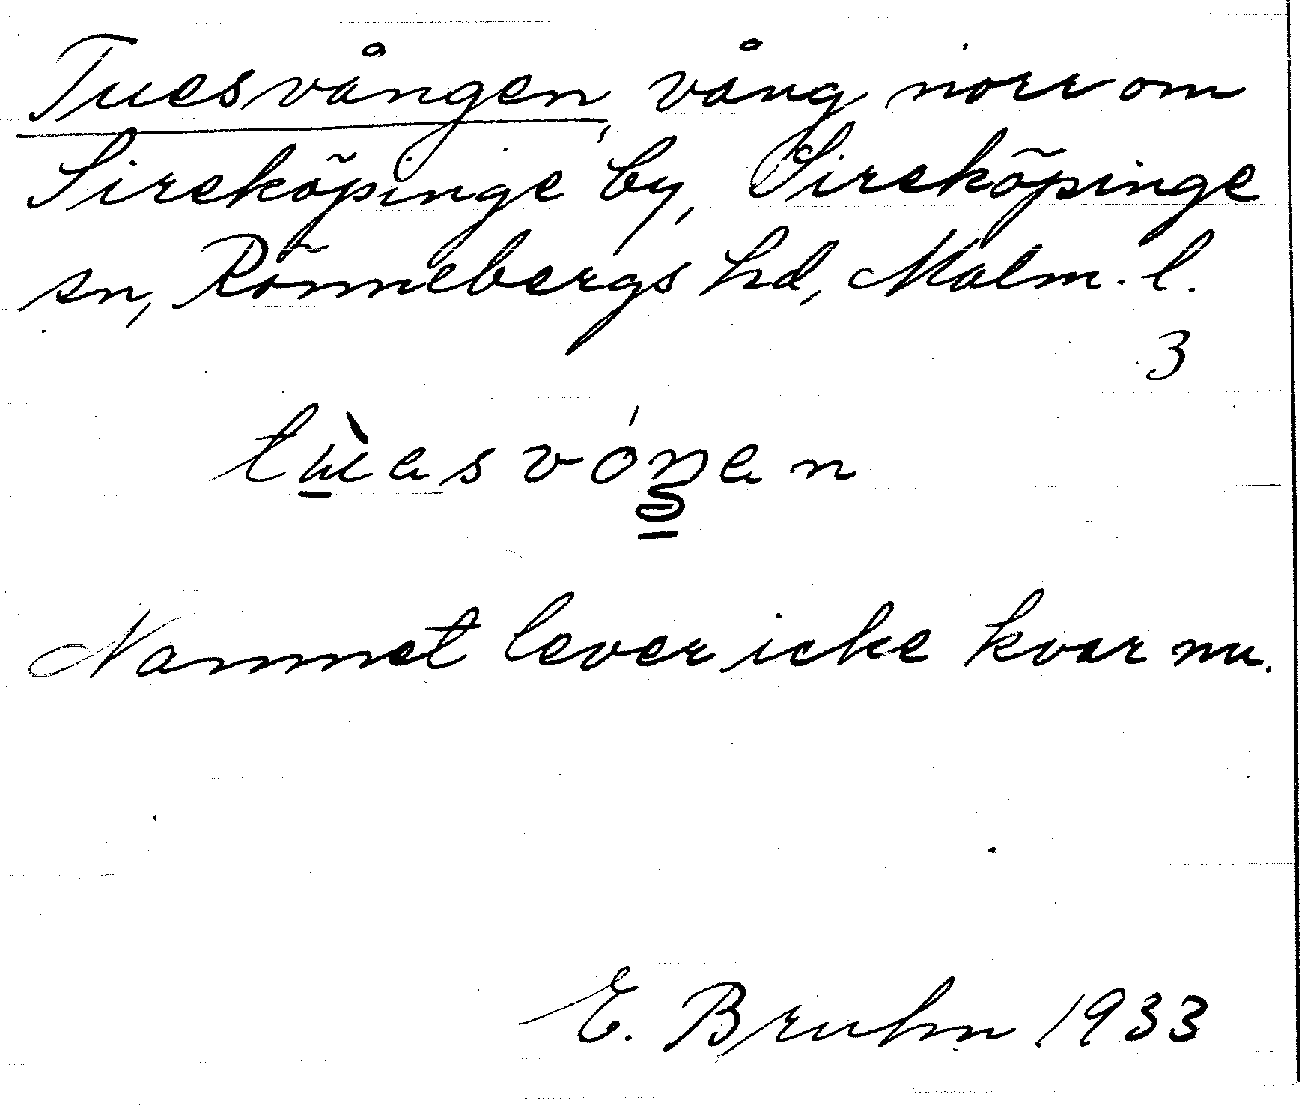 Tuesvången, vång norr om
Sireköpinge by, Sireköpinge
sn, Rönnebergs hd, Malm. l.
3
tùasvóŋan
Namnet lever icke kvar nu.
E. Bruhn 1933